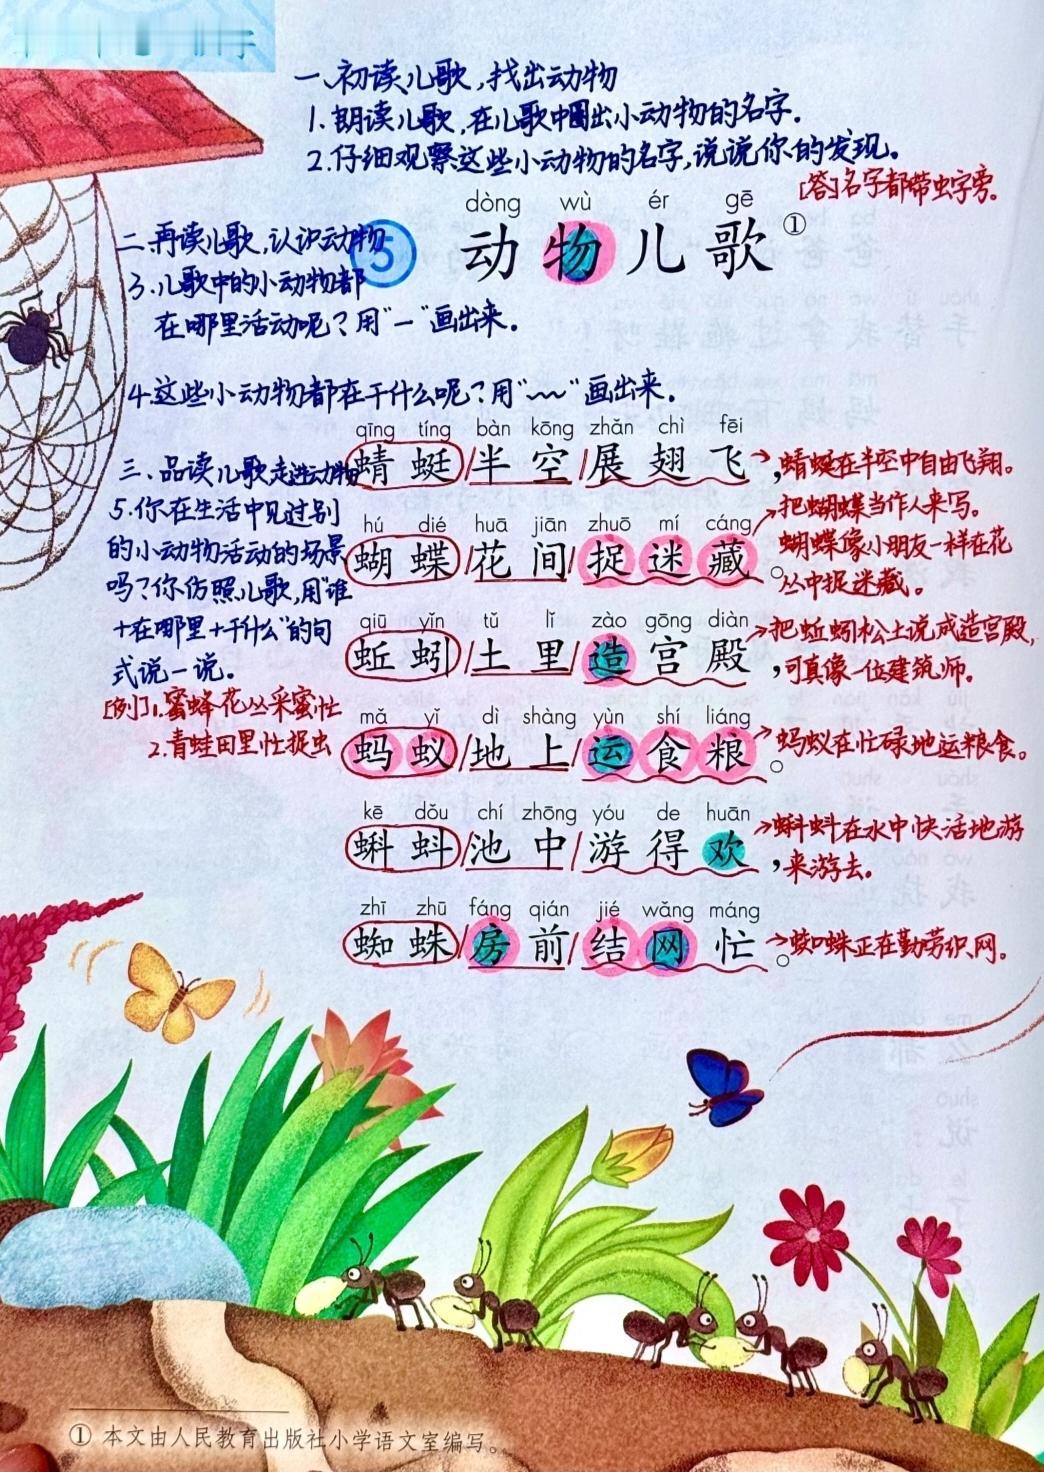 一、初读儿歌,找出动物
1.朗读儿歌,在儿歌中圈出小动物的名字.
2.仔细观察这些小动物的名字,说说你的发现。
[答]名字都带虫字旁。
dòng wù ér gē
5 动物儿歌①
二、再读儿歌,认识动物
3.儿歌中的小动物都
在哪里活动呢?用"—"画出来。
4.这些小动物都在干什么呢?用"﹏"画出来。
qīng tíng bàn kōng zhǎn chì fēi
蜻蜓/半空/展翅飞,
→蜻蜓在半空中自由飞翔。
hú dié huā jiān zhuō mí cáng
蝴蝶/花间/捉迷藏。
→把蝴蝶当作人来写。
蝴蝶像小朋友一样在花
丛中捉迷藏。
qiū yǐn tǔ lǐ zào gōng diàn
蚯蚓/土里/造宫殿,
→把蚯蚓松土说成造宫殿,
可真像一位建筑师。
mǎ yǐ dì shàng yùn shí liáng
蚂蚁/地上/运食粮。
→蚂蚁在忙碌地运粮食。
kē dǒu chí zhōng yóu de huān
蝌蚪/池中/游得欢,
→蝌蚪在水中快活地游
来游去。
zhī zhū fáng qián jié wǎng máng
蜘蛛/房前/结网忙。
→蜘蛛正在勤劳织网。
三、品读儿歌走进动物
5.你在生活中见过别
的小动物活动的场景
吗?你仿照儿歌,用"谁
+在哪里+干什么"的句
式说一说。
[例]1.蜜蜂花丛采蜜忙
2.青蛙田里忙捉虫
① 本文由人民教育出版社小学语文室编写。